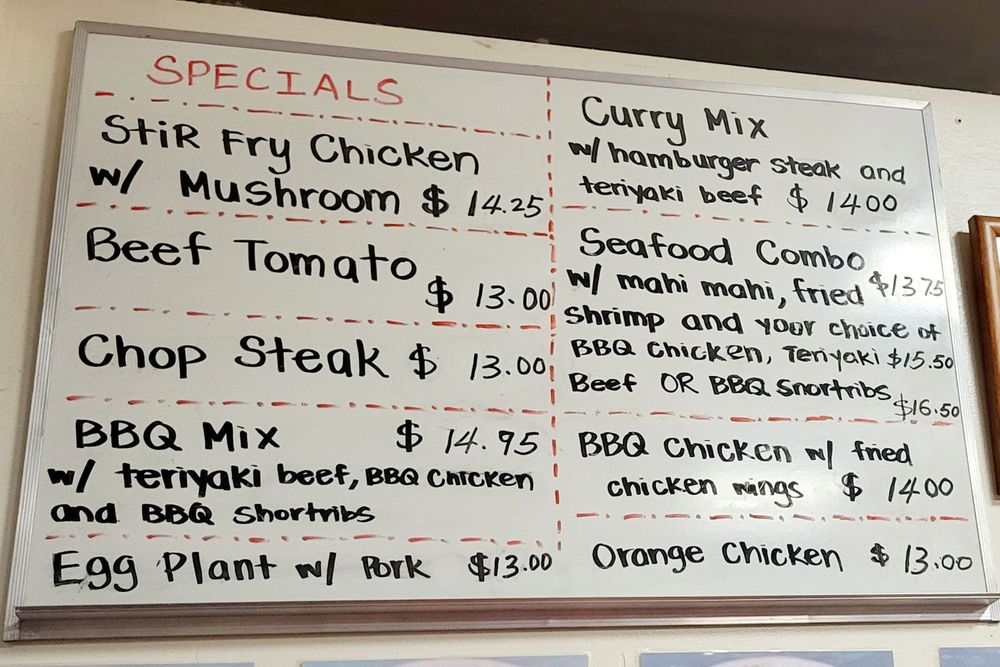 SPECIALS
Stir Fry Chicken
w/ Mushroom $ 14.25
Beef Tomato
$ 13.00
Chop Steak $ 13.00
BBQ Mix $ 14.95
w/ teriyaki beef, BBQ Chicken
and BBQ Shortribs
Egg Plant w/ Pork $13.00
Curry Mix
w/ hamburger steak and
teriyaki beef $ 1400
Seafood Combo
w/ mahi mahi, fried $1375
shrimp and your choice of
BBQ Chicken, Teriyaki $15.50
Beef OR BBQ Shortribs
$16.50
BBQ Chicken w/ fried
chicken wings $ 1400
Orange Chicken $ 13.00